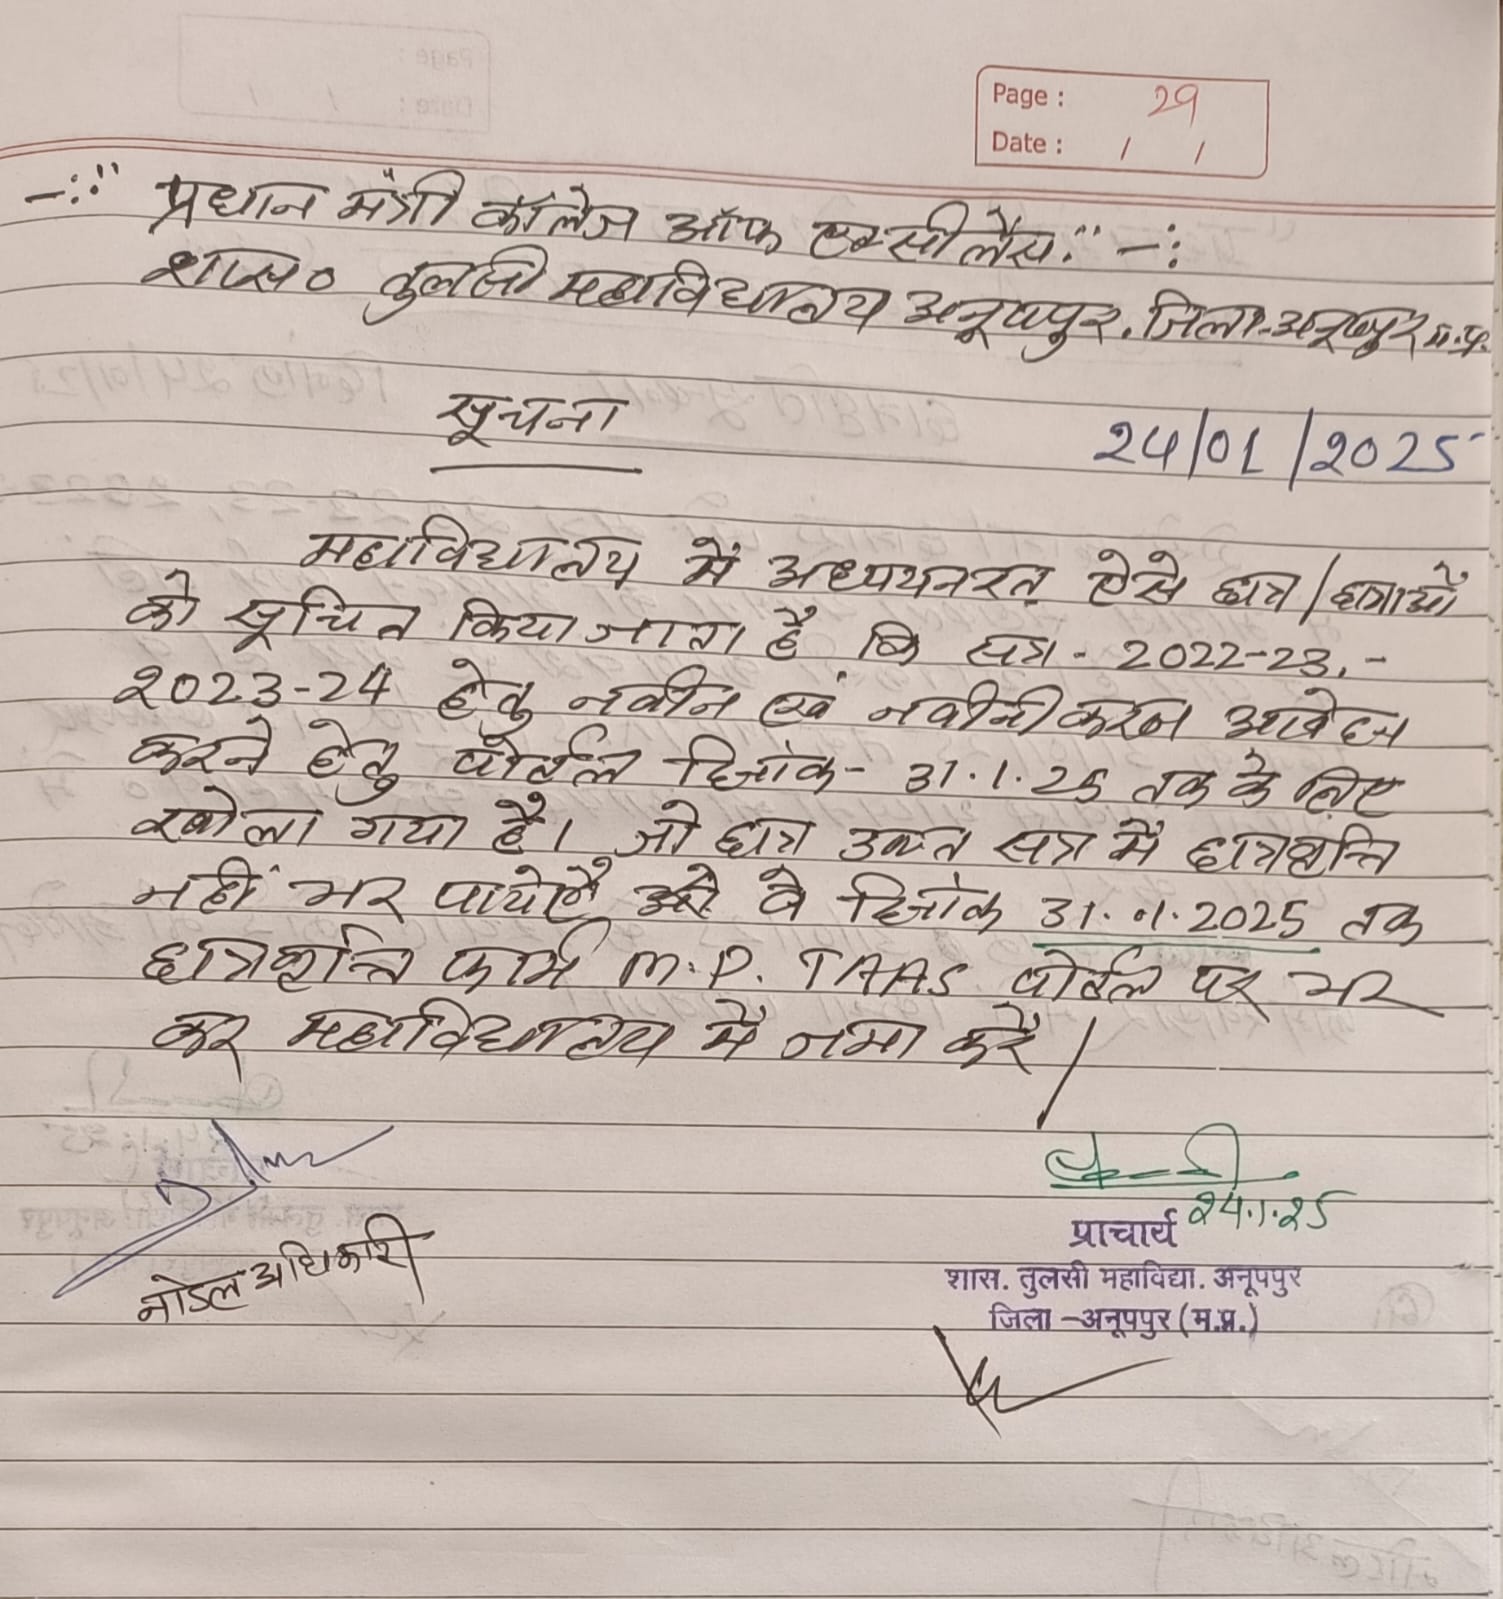 Page : 29
Date : / /
-:" प्रधान मंत्री कॉलेज ऑफ एक्सीलेंस." -:
शास० तुलसी महाविद्यालय अनूपपुर. जिला-अनूपपुर म.प्र.
सूचना 24/01/2025
महाविद्यालय में अध्ययनरत ऐसे छात्र/छात्राओं
को सूचित किया जाता है कि सत्र - 2022-23, -
2023-24 हेतु नवीन एवं नवीनीकरण आवेदन
करने हेतु पोर्टल दिनांक - 31.1.25 तक के लिए
खोला गया है। जो छात्र उक्त सत्र में छात्रवृत्ति
नहीं भर पाये हैं वे दिनांक 31.01.2025 तक
छात्रवृत्ति फार्म M.P. TAAS पोर्टल पर भर
कर महाविद्यालय में जमा करें।
24.1.25
नोडल अधिकारी
प्राचार्य
शास. तुलसी महाविद्या. अनूपपुर
जिला -अनूपपुर (म.प्र.)